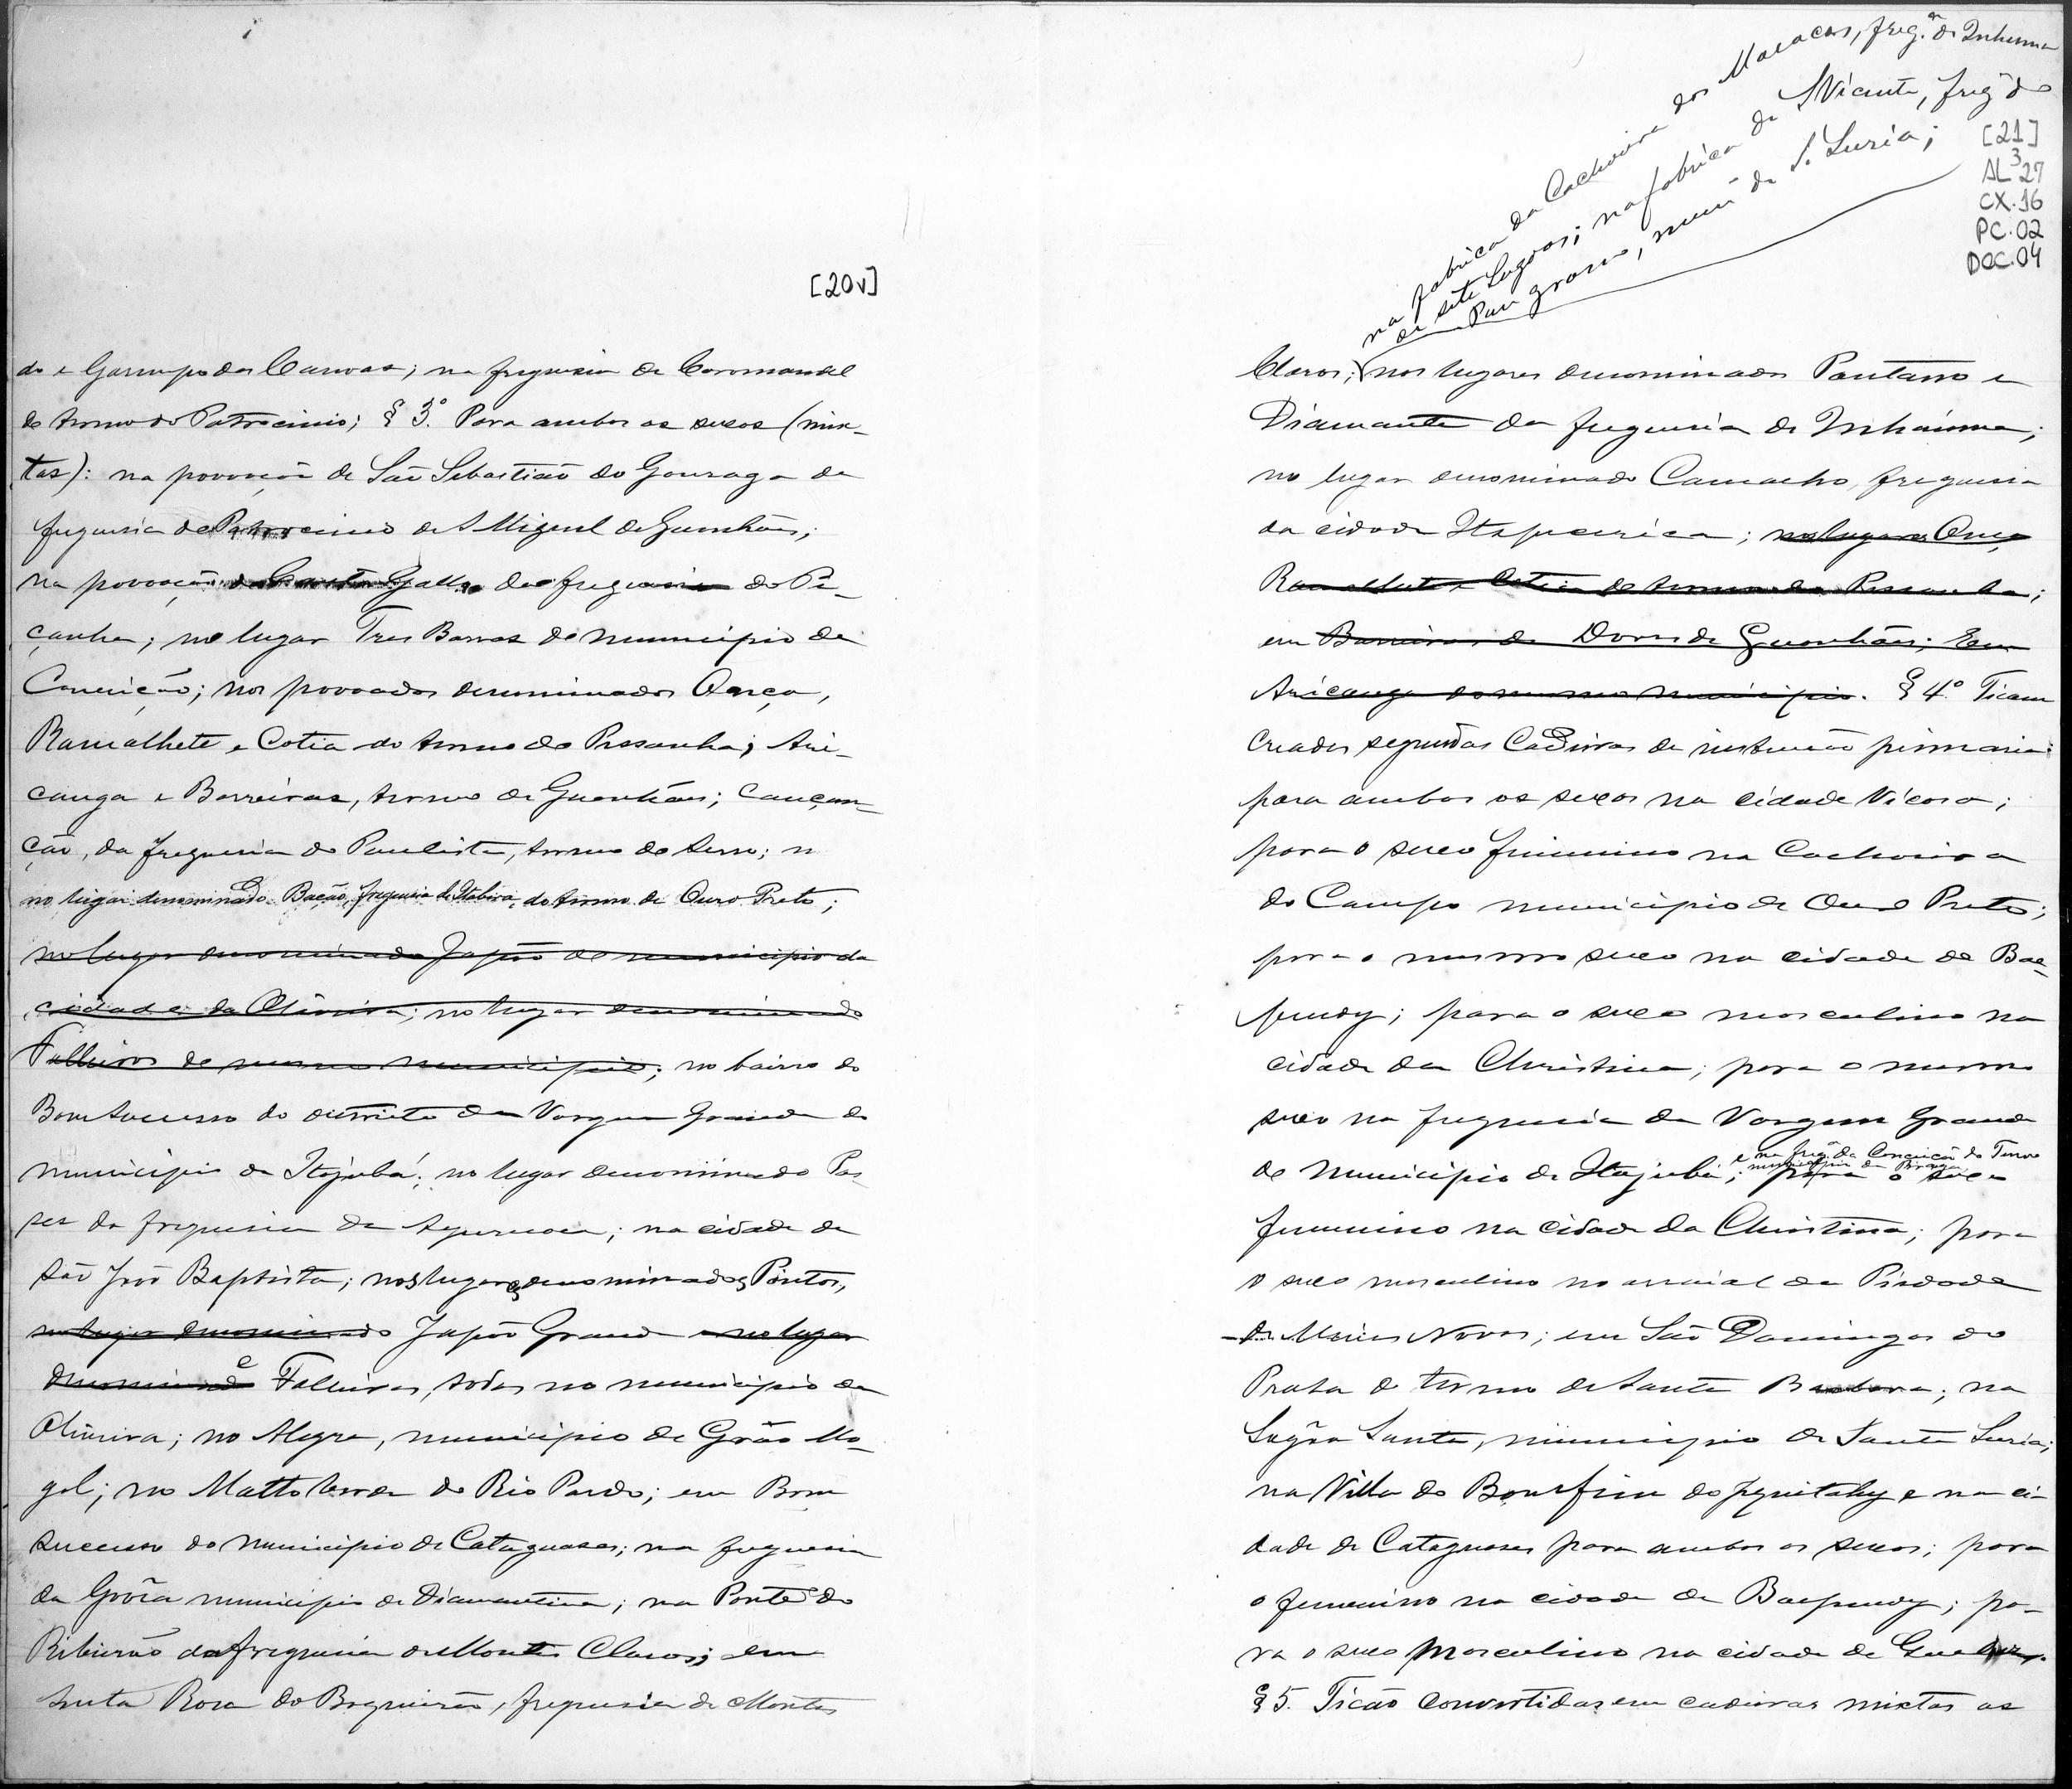 [20v]
do e Garimpo das Canoas; na freguesia de Coromandel
do termo do Patrocinio; § 3º. Para ambos os sexos (mix-
tas): na povoação de São Sebastião do Gonzaga da
freguesia de Patrocinio de S Miguel de Guanhães;
na povoação do Gallo da freguesia do Pe-
çanha; no lugar Tres Barras do municipio da
Conceição; nos povoados denominados Onça,
Ramalhete e Cotia do termo do Pessanha; Ari-
canga e Barreiras, termo de Guanhães; Cançan-
ção, da freguesia do Paulista, termo do Serro; n
no lugar denominado Bação, freguesia de Itabira, do termo de Ouro Preto;
no lugar denominado Japão do municipio da
cidade da Oliveira; no lugar denominado
Folheiros do mesmo municipio; no bairro do
Bom Successo do districto da Vargem Grande do
municipio de Itajubá; no lugar denominado Pos
ses da freguesia da Ayuruoca; na cidade de
São João Baptista; nos lugares denominados Pintos,
no lugar denominado Japão Grande e no lugar
denominado e Folheiros, todos no municipio da
Oliveira; no Alegre, municipio de Grão Mo-
gol; no Matto Verde do Rio Pardo; em Bom
successo do municipio de Cataguases; na freguesia
da Gloria municipio de Diamantina; na Ponte do
Ribeirão da freguesia de Montes Claros; em
Santa Rosa do Boqueirão, freguesia de Montes
na fabrica da Cachoeira dos Macacos, freg.ª de Inhauma
de Sete Lagoas; na fabrica de S Vicente, freg. do
Pau grosso, mun. de S. Luzia;
[21]
AL³27
CX.16
PC.02
DOC.04
Claros; nos lugares denominados Pantano e
Diamante da freguesia de Inhaúma;
no lugar denominado Camacho, freguesia
da cidade Itapecerica; nos lugares Onça
Ramalhete e Cotia do termo do Pessanha;
em Barreiras de Dores de Guanhães; Em
Aricanga do mesmo municipio. § 4º Ficam
creadas segundas Cadeiras de instrucção primaria:
para ambos os sexos na cidade Viçosa;
para o sexo feminino na Cachoeira
do Campo municipio de Ouro Preto;
para o mesmo sexo na cidade de Bae-
pendy; para o sexo masculino na
cidade da Christina; para o mesmo
sexo na freguesia da Vargem Grande
do Municipio de Itajubá; e na freg. da Conceição do Turvo
municipio da Piranga para o sexo
feminino na cidade da Christina; para
o sexo masculino no arraial da Piedade
de Minas Novas; em São Domingos do
Prata do termo de Santa Barbara; na
Lagôa Santa, municipio de Santa Luzia;
na Villa do Bomfim do Jequitahy e na ci-
dade de Cataguases para ambos os sexos; para
o feminino na cidade de Baependy; pa-
ra o sexo Masculino na cidade de
§ 5. Ficão convertidas em cadeiras mixtas as